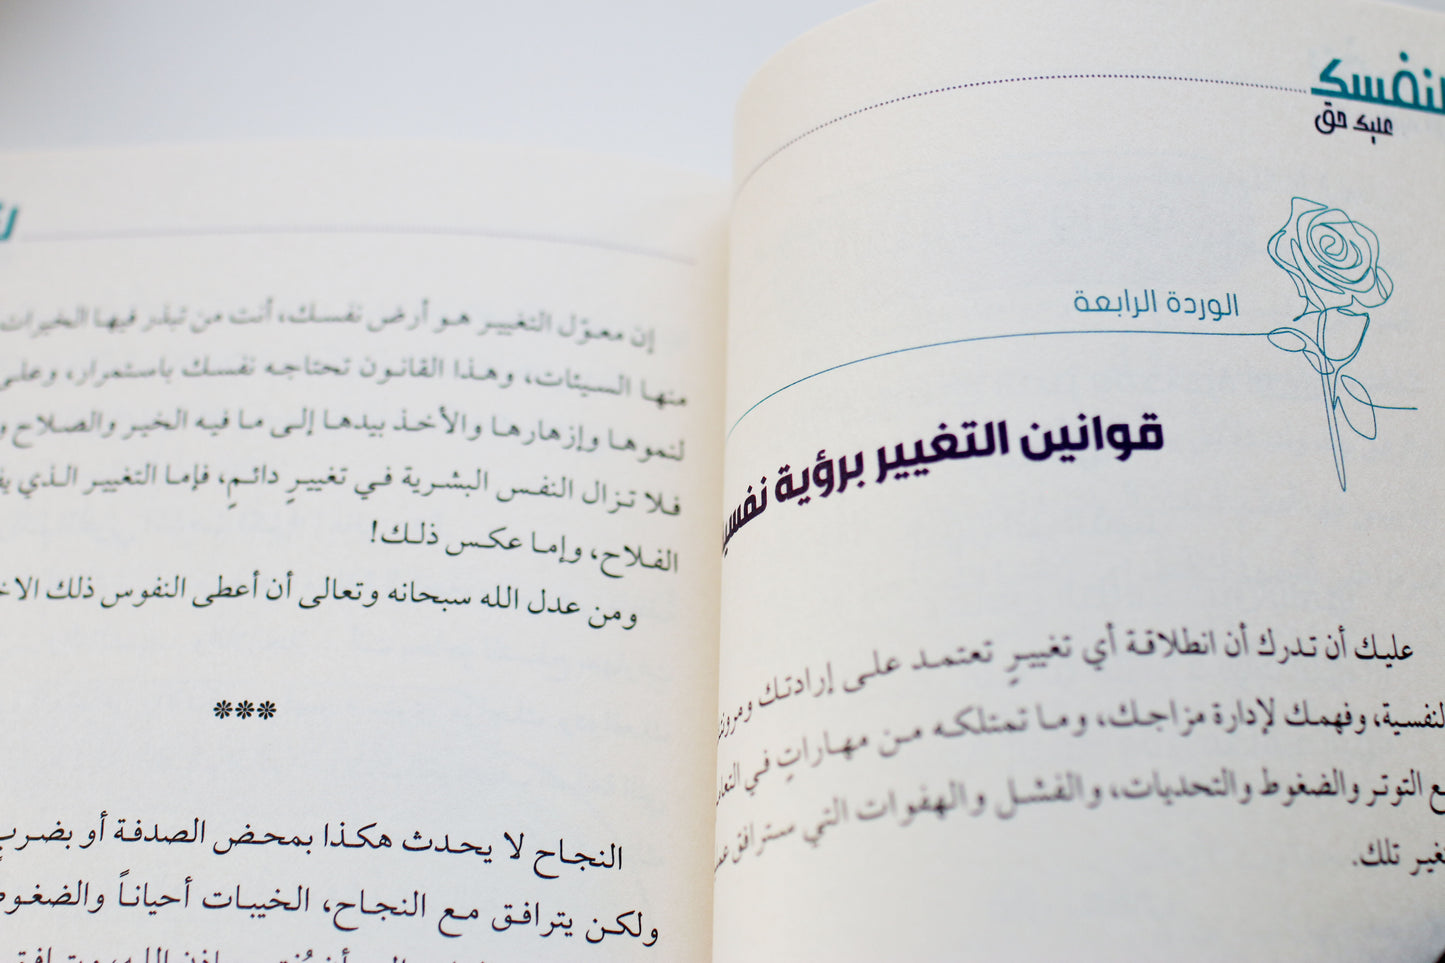 لنفسك
عليك حق
الوردة الرابعة
قوانين التغيير برؤية
عليك أن تدرك أن انطلاقة أي تغييرٍ تعتمد على إرادتك
النفسية، وفهمك لإدارة مزاجك، وما تمتلكه من مهاراتٍ في
التوتر والضغوط والتحديات، والفشل والهفوات التي سترافق
تلك.
إن معوّل التغيير هو أرض نفسك، أنت من تبذر فيها الخيرات
منها السيئات، وهذا القانون تحتاجه نفسك باستمرار، وعلى
لنموها وإزهارها والأخذ بيدها إلى ما فيه الخير والصلاح
فلا تزال النفس البشرية في تغييرٍ دائمٍ، فإما التغيير الذي
الفلاح، وإما عكس ذلك!
ومن عدل الله سبحانه وتعالى أن أعطى النفوس ذلك
***
النجاح لا يحدث هكذا بمحض الصدفة أو بضربٍ
ولكن يترافق مع النجاح، الخيبات أحياناً والضغوط